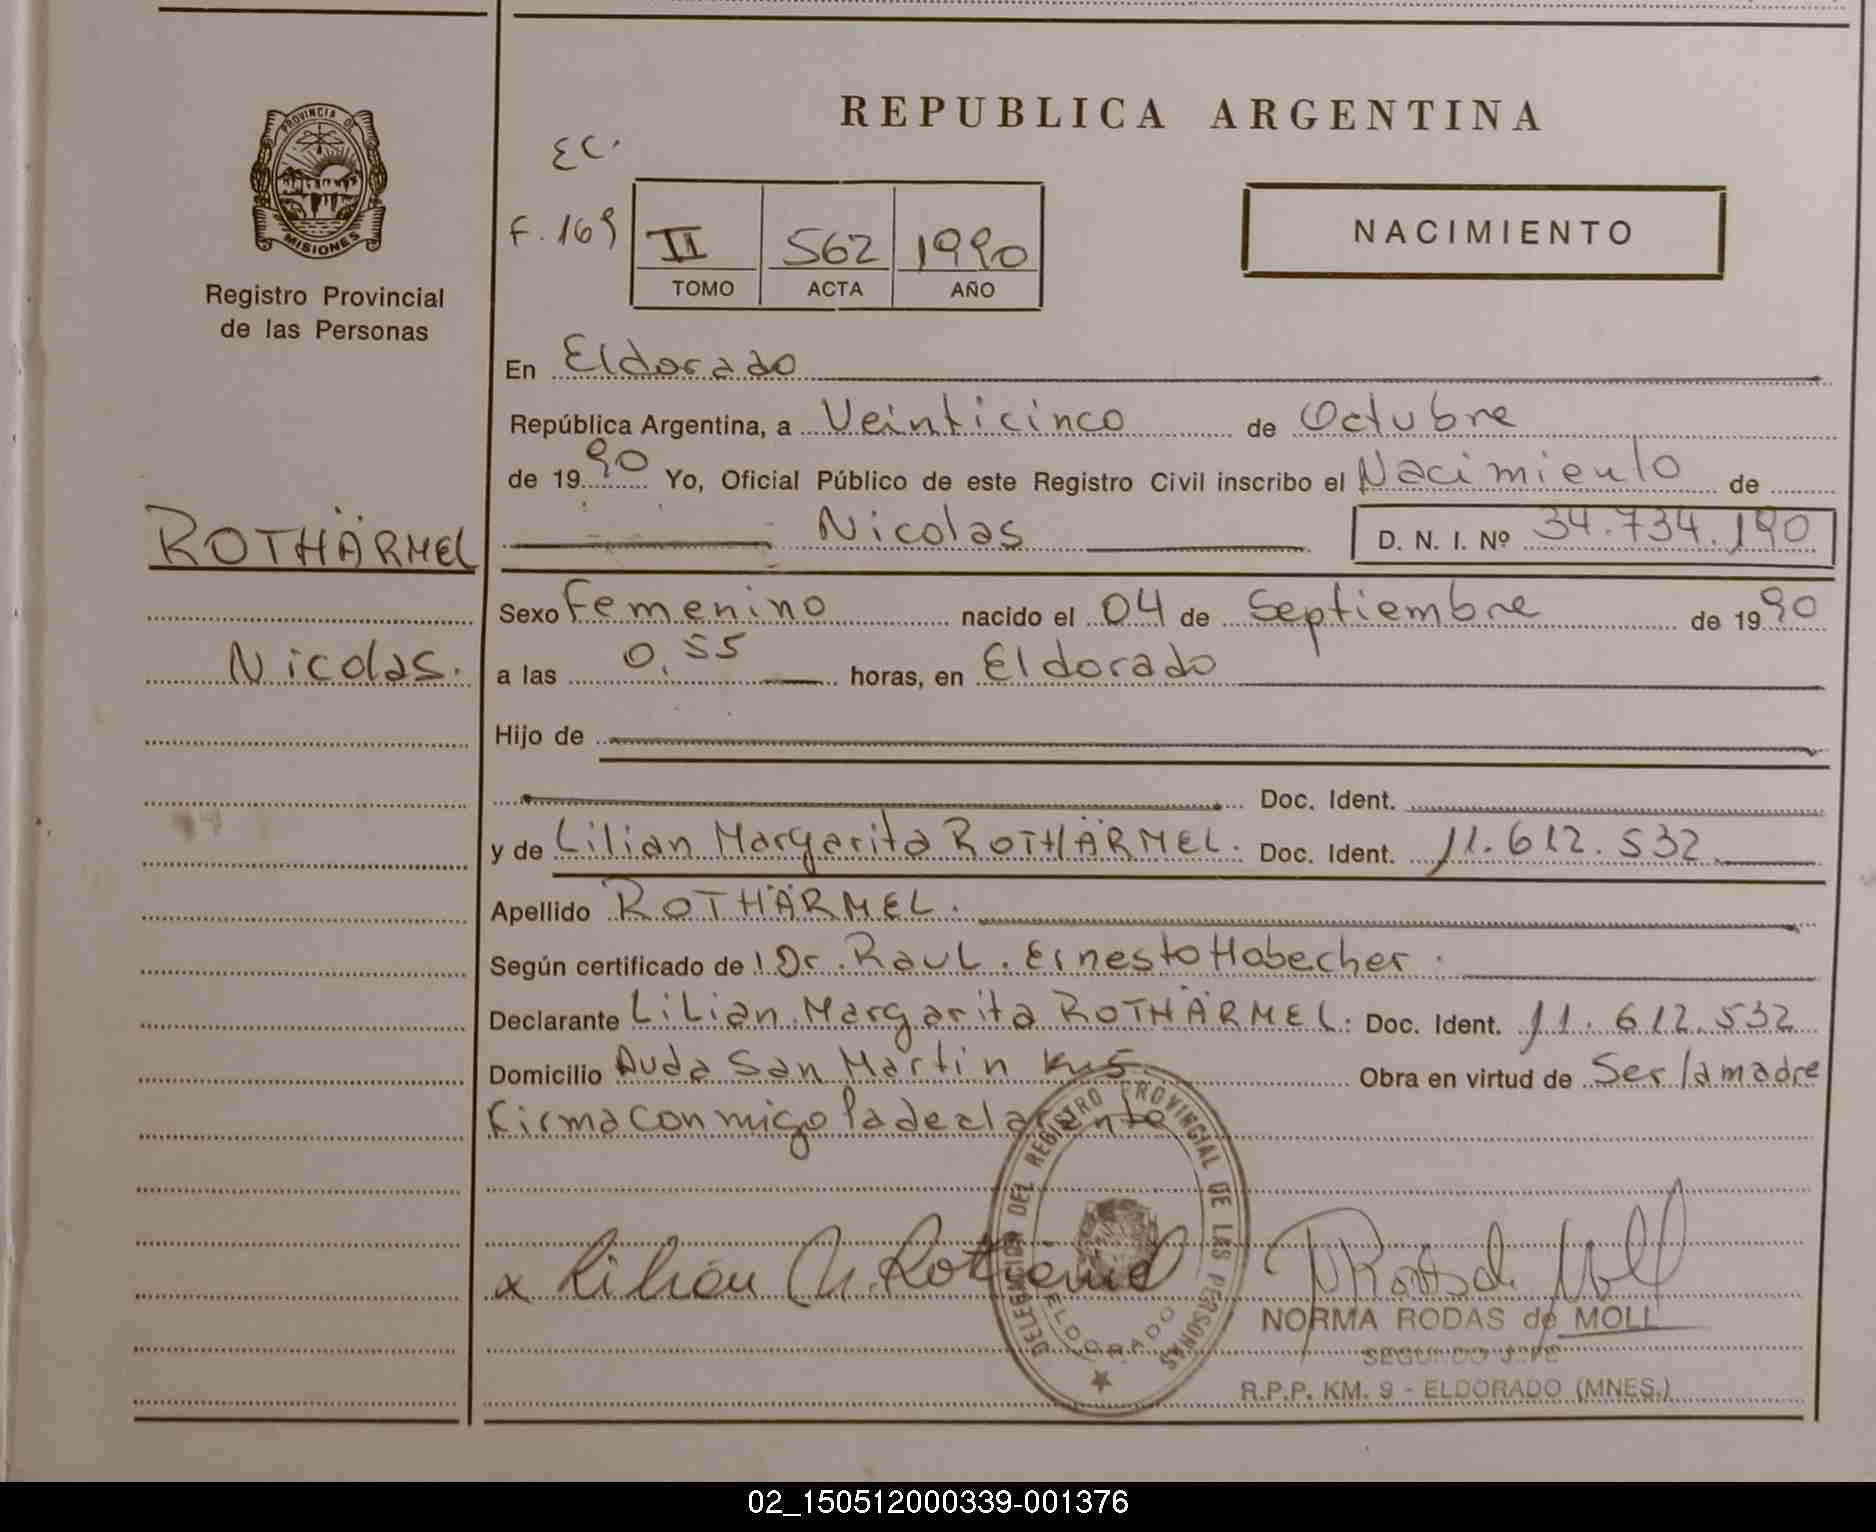 REPUBLICA ARGENTINA
PROVINCIA DE
MISIONES
Registro Provincial
de las Personas
EC.
F. 169
II 562 1990
TOMO ACTA AÑO
NACIMIENTO
En Eldorado
República Argentina, a Veinticinco de Octubre
de 1990 Yo, Oficial Público de este Registro Civil inscribo el Nacimiento de
ROTHÄRMEL
Nicolas D. N. I. Nº 34.734.190
Sexo Femenino nacido el 04 de Septiembre de 1990
Nicolas.
a las 0.55 horas, en Eldorado
Hijo de
Doc. Ident.
y de Lilian Margarita ROTHÄRMEL. Doc. Ident. 11.612.532
Apellido ROTHÄRMEL.
Según certificado de Dr. Raul. Ernesto Habecher.
Declarante Lilian Margarita ROTHÄRMEL. Doc. Ident. 11.612.532
Domicilio Avda San Martin Km 5 Obra en virtud de Ser la madre
firma conmigo la declarante
DELEGACION DEL REGISTRO PROVINCIAL DE LAS PERSONAS
ELDORADO
x Lilian M. Rothärmel
NORMA RODAS de MOLL
SEGUNDO JEFE
R.P.P. KM. 9 - ELDORADO (MNES.)
02_150512000339-001376